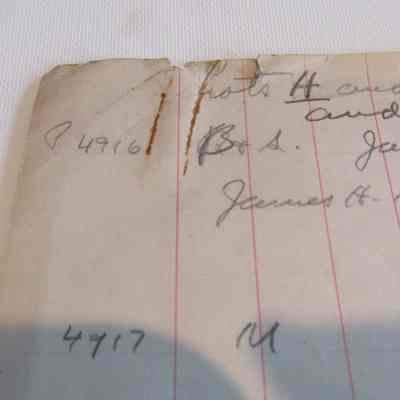 Lots H and
and
P 4916 B & S. Ja
James H.
4917 M